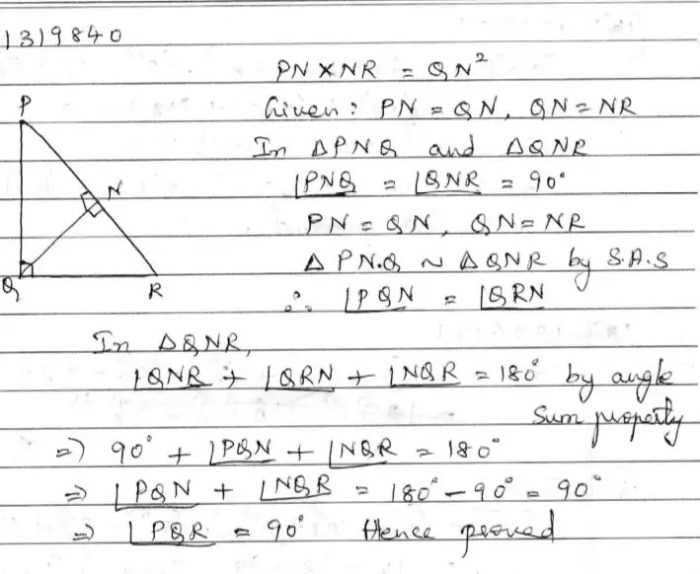 1319840
PN × NR = QN²
Given: PN = QN, QN = NR
P
In ΔPNQ and ΔQNR
∠PNQ = ∠QNR = 90°
N
PN = QN, QN = NR
ΔPN.Q ~ ΔQNR by S.A.S
Q R
∴ ∠PQN = ∠QRN
In ΔQNR,
∠QNR + ∠QRN + ∠NQR = 180° by angle
sum property
=> 90° + ∠PQN + ∠NQR = 180°
=> ∠PQN + ∠NQR = 180° - 90° = 90°
=> ∠PQR = 90° Hence proved